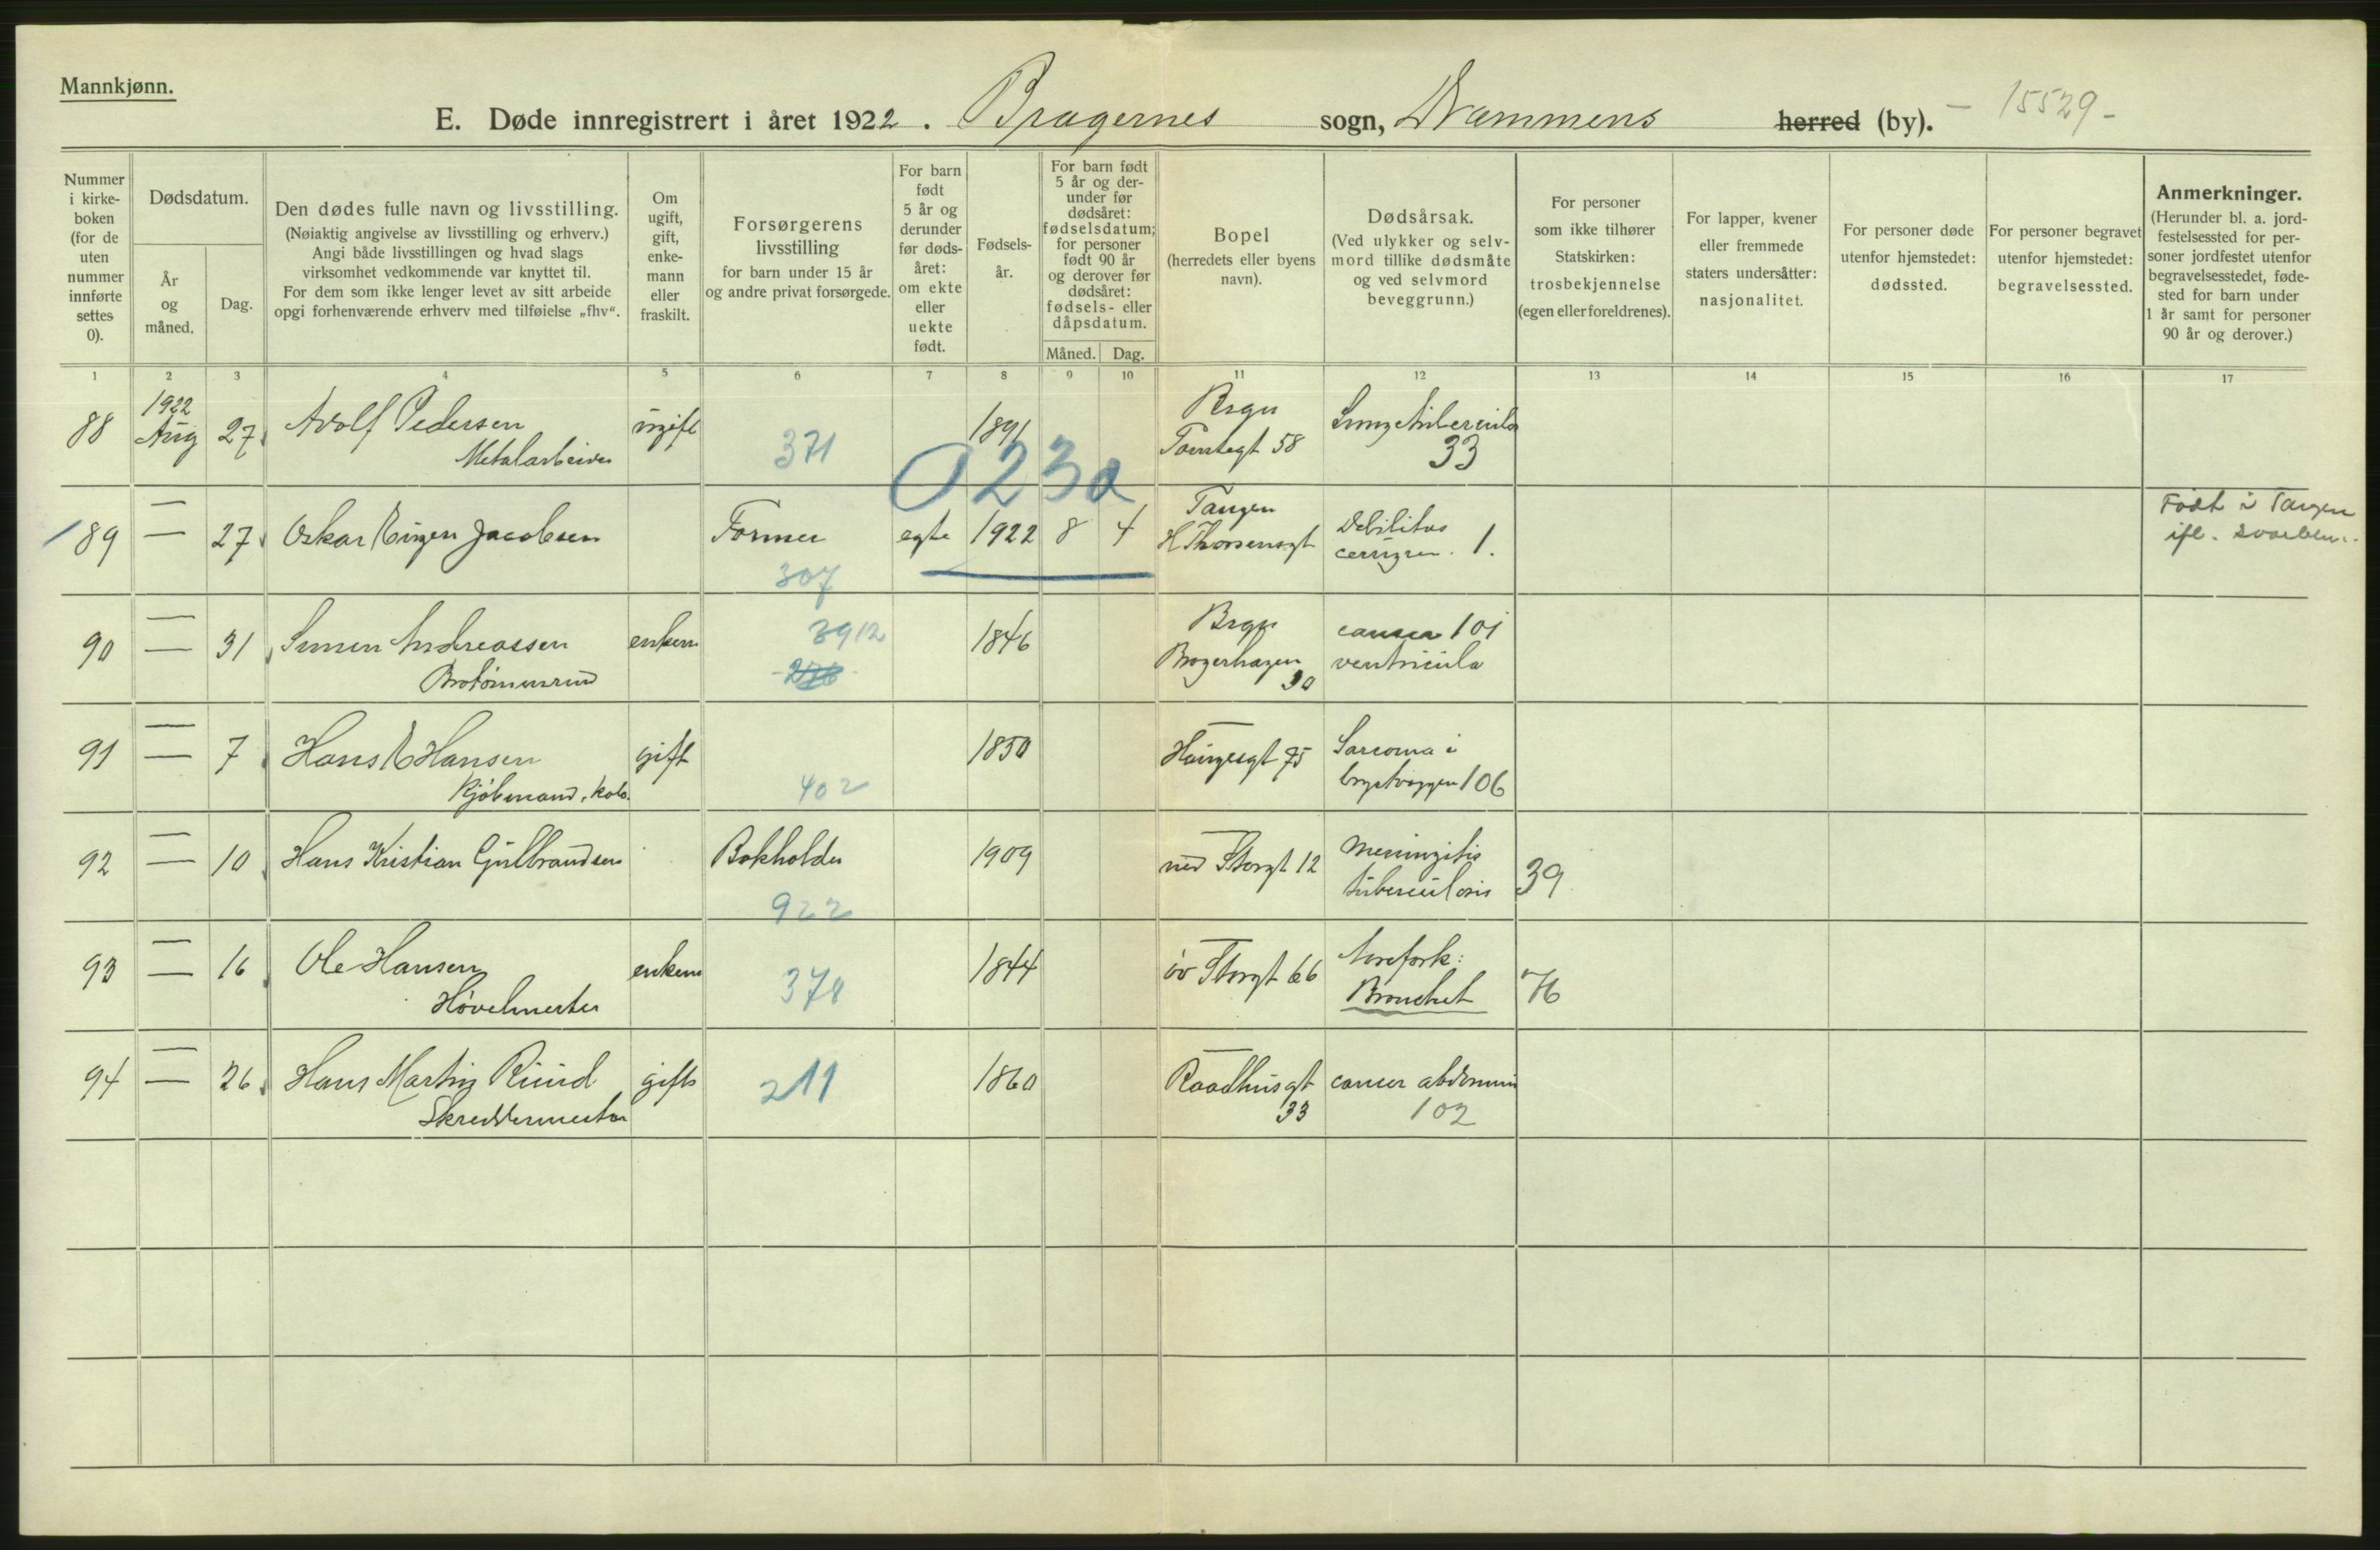 Mannkjønn.
E. Døde innregistrert i året 1922. Bragernes sogn, Drammens herred (by). — 15529 -
Nummer i kirke-boken (for de uten nummer innførte settes 0).
Dødsdatum.
År og måned.
Dag.
Den dødes fulle navn og livsstilling.
(Nøiaktig angivelse av livsstilling og erhverv.)
Angi både livsstillingen og hvad slags
virksomhet vedkommende var knyttet til.
For dem som ikke lenger levet av sitt arbeide
opgi forhenværende erhverv med tilføielse „fhv“.
Om ugift, gift, enke-mann eller fraskilt.
Forsørgerens livsstilling
for barn under 15 år
og andre privat forsørgede.
For barn født 5 år og derunder før døds-året: om ekte eller uekte født.
Fødsels-år.
For barn født 5 år og der-under før dødsåret: fødselsdatum; for personer født 90 år og derover før dødsåret: fødsels- eller dåpsdatum.
Måned. Dag.
Bopel
(herredets eller byens navn).
Dødsårsak.
(Ved ulykker og selv-mord tillike dødsmåte og ved selvmord beveggrunn.)
For personer som ikke tilhører Statskirken: trosbekjennelse (egen eller foreldrenes).
For lapper, kvener eller fremmede staters undersåtter: nasjonalitet.
For personer døde utenfor hjemstedet: dødssted.
For personer begravet utenfor hjemstedet: begravelsessted.
Anmerkninger.
(Herunder bl. a. jord-festelsessted for per-soner jordfestet utenfor begravelsesstedet, føde-sted for barn under 1 år samt for personer 90 år og derover.)
1 2 3 4 5 6 7 8 9 10 11 12 13 14 15 16 17
88 1922 Aug 27 Adolf Pedersen ugift 1891 Brgn
Metalarbeider 371 Tomtegt 58 33
0230
89 — 27 Oskar Jacobsen Former egte 1922 8 4 Tangen
H Thornensgt Debilitas 1.
307
Født i Tangen
ifl.
90 — 31 Simen Andreassen enkem 3912 1846 Brgn cancer 101
Bragerhagen 30 ventricula
91 — 7 Hans Hansen gift 1850 Haugesgt 75 Sarcoma i
Kjøbmand, kolo. 402 brystvæggen 106
92 — 10 Hans Kristian Gulbrandsen Bokholder 1909 ned Storgt 12 Meningitis
922 tuberculosis 39
93 — 16 Ole Hansen enkem 1844 øv Storgt 66
Høvelmester 378 Bronchit 76
94 — 26 Hans Martin Ruud gift 1860 Raadhusgt cancer abdominis
Skreddermester 211 33 102